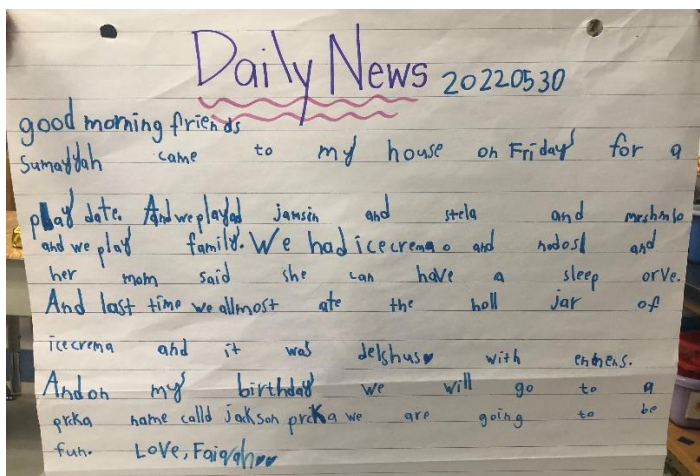 Daily News 20220530
good morning friends
Sumayyah came to my house on Friday for a
play date. And we played jamsin and stela and meshmlo
and we play family. We had icecrema and nodosl and
her mom said she can have a sleep orve.
And last time we allmost ate the holl jar of
icecrema and it was delshus with enhens.
And on my birthday we will go to a
prcka name calld jackson prcka we are going to be
fun. Love, Faiqah